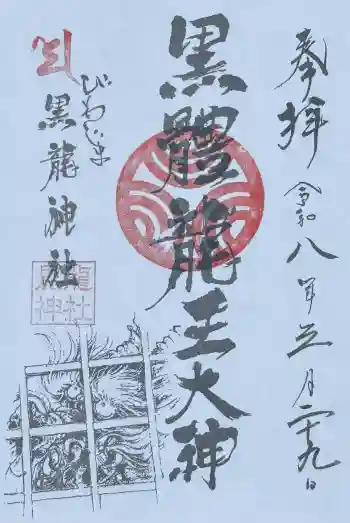 奉拝
令和八年五月二十九日
黒體龍王大神
びわじま
黒龍神社
黒龍神社